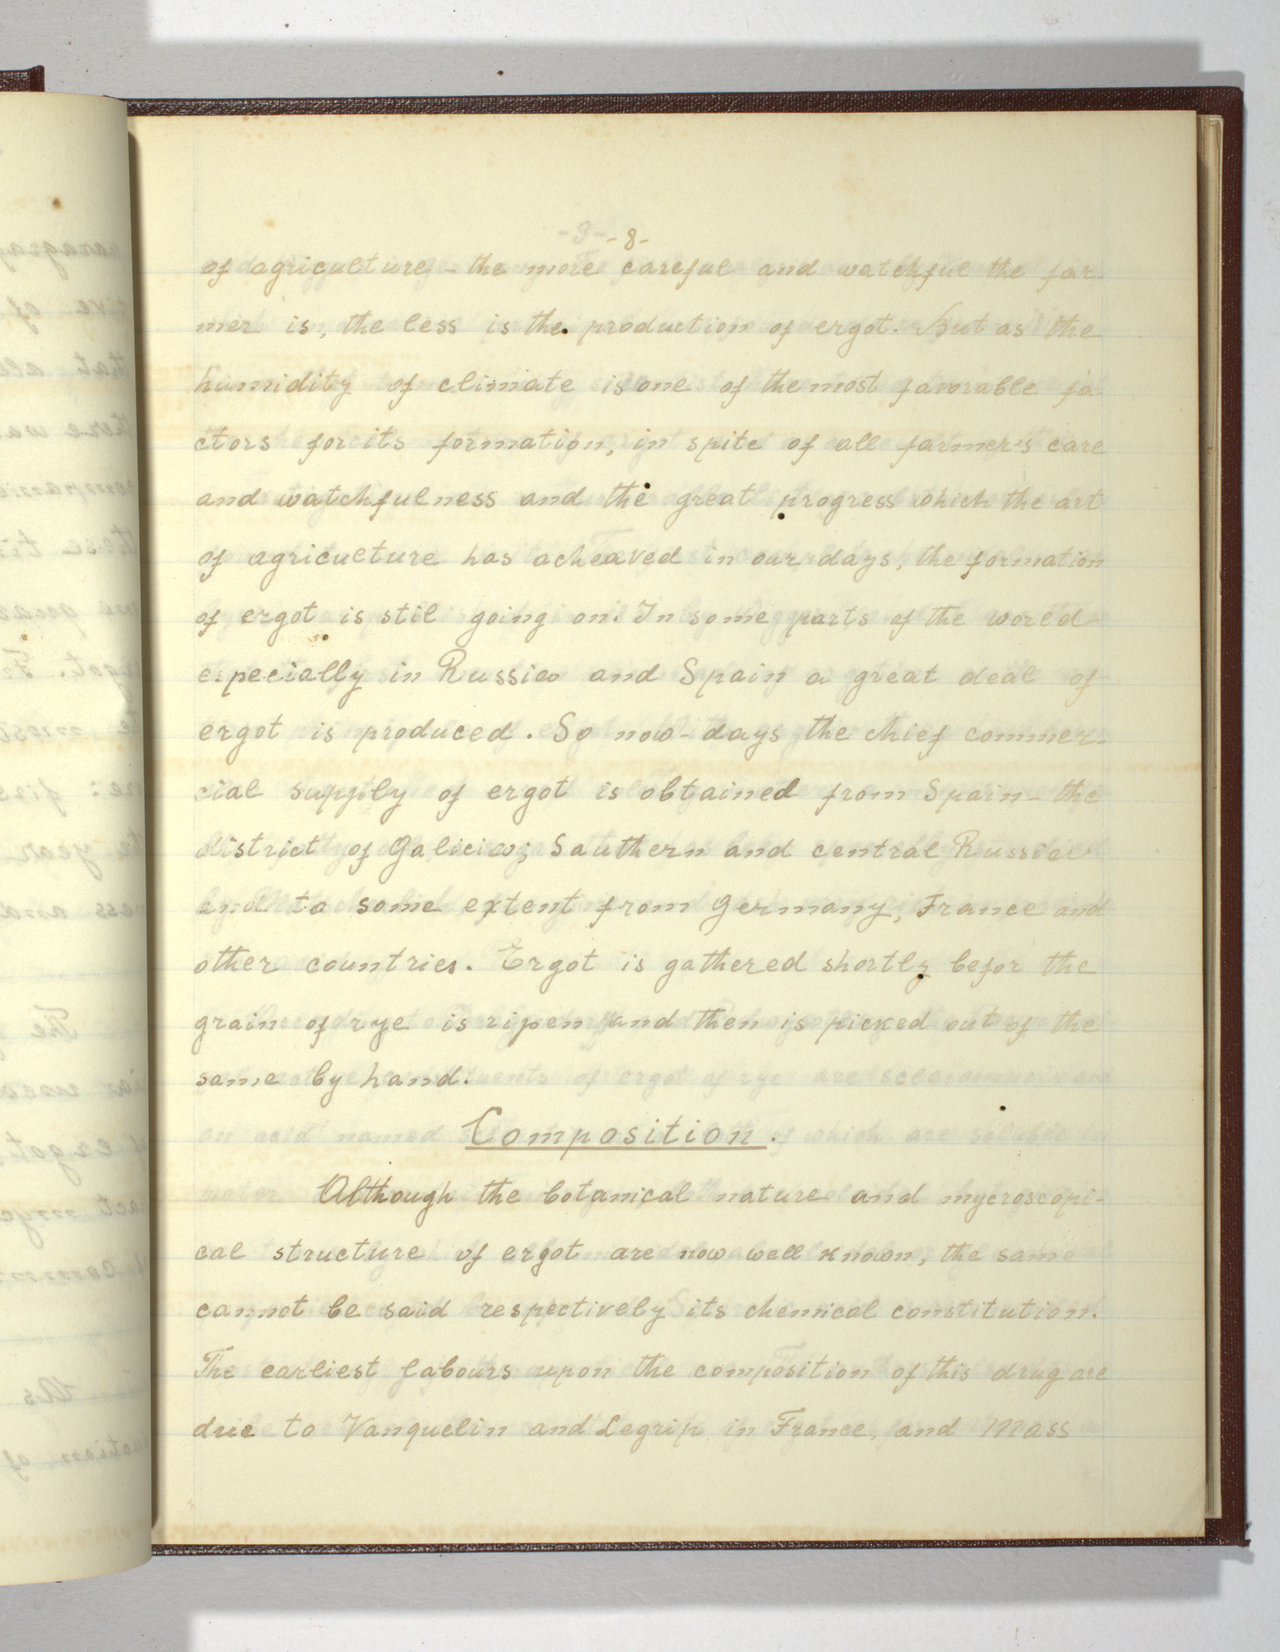 -8-
of agriculture - the more careful and watchful the far-
mer is, the less is the production of ergot. But as the
humidity of climate is one of the most favorable fa-
ctors for its formation, in spite of all farmer's care
and watchfulness and the great progress which the art
of agriculture has acheaved in our days, the formation
of ergot is stil going on. In some parts of the world
especially in Russia and Spain a great deal of
ergot is produced. So now-days the chief commer-
cial supply of ergot is obtained from Spain - the
district of Galicia; Sauthern and central Russia
and to some extent from Germany, France and
other countries. Ergot is gathered shortly befor the
grain of rye is ripen and then is picked out of the
same by hand.
Composition.
Although the botanical nature and mycroscopi-
cal structure of ergot are now well known, the same
cannot be said respectively its chemical constitution.
The earliest labours upon the composition of this drug are
due to Vanquelin and Legrip in France, and Mass